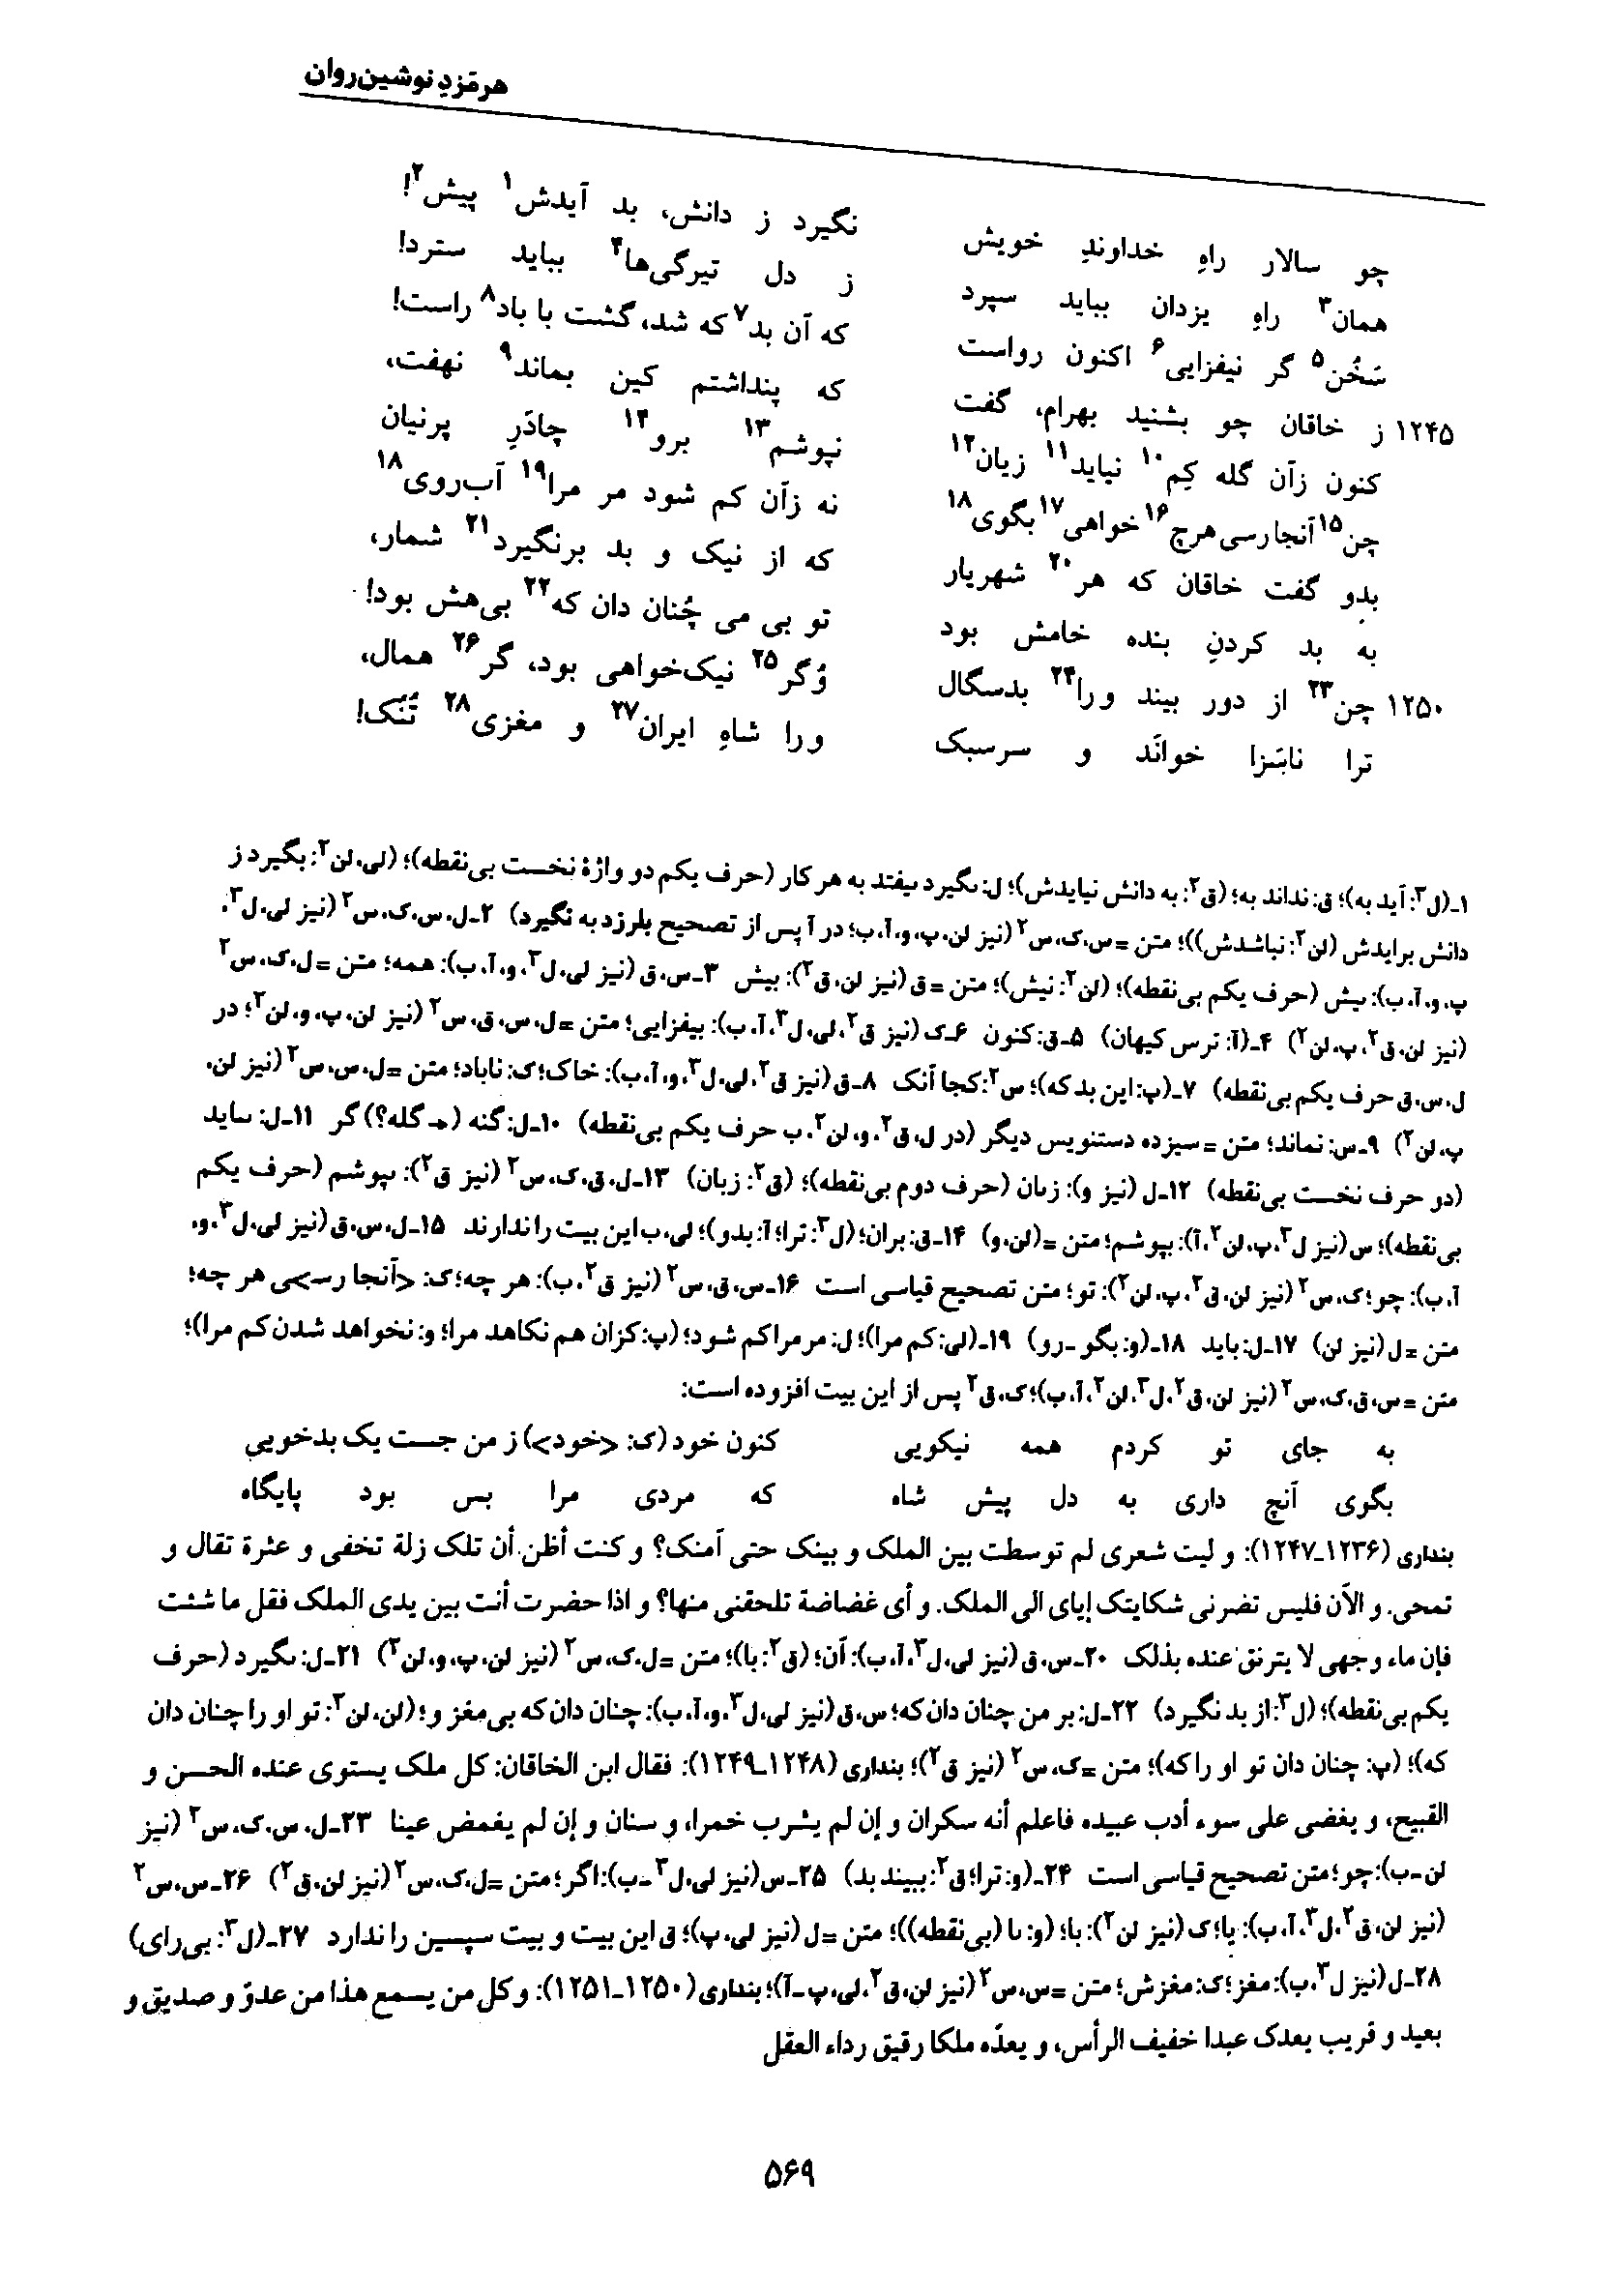 هرمَزدِ نوشین‌روان
چو سالار راهِ خداوندِ خویش نگیرد ز دانش، بد آیدش۱ پیش۲!
همان۳ راهِ یزدان بباید سپرد ز دل تیرگی‌ها۴ بباید سترد!
سَخُن۵ گر نیفزایی۶ اکنون رواست که آن بد۷ که شد، گشت با باد۸ راست!
۱۲۴۵ ز خاقان چو بشنید بهرام، گفت که پنداشتم کین بماند۹ نهفت،
کنون زآن گله کِم۱۰ نیاید۱۱ زیان۱۲ نپوشم۱۳ برو۱۴ چادَرِ پرنیان
چن۱۵ آنجا رسی هرچ۱۶ خواهی۱۷ بگوی۱۸ نه زآن کم شود مر مرا۱۹ آب‌روی۱۸
بدو گفت خاقان که هر۲۰ شهریار که از نیک و بد برنگیرد۲۱ شمار،
به بد کردنِ بنده خامش بود تو بی می چُنان دان که۲۲ بی‌هش بود!
۱۲۵۰ چن۲۳ از دور بیند ورا۲۴ بدسگال وُگر۲۵ نیک‌خواهی بود، گر۲۶ همال،
ترا ناسَزا خوانَد و سرسبک ورا شاهِ ایران۲۷ و مغزی۲۸ تُنُک!
۱ـ(ل۳: آید به)؛ ق: نداند به؛ (ق۲: به دانش نیایدش)؛ ل: ىگیرد ىیفتد به هر کار (حرف یکم دو واژهٔ نخست بی‌نقطه)؛ (لی، لن۲: بگیرد ز
دانش برایدش (لن۲: نباشدش))؛ متن = س، ک، س۲ (نیز لن، پ، و، آ، ب؛ در آ پس از تصحیح بلرزد به نگیرد) ۲ـ ل، س، ک، س۲ (نیز لی، ل۳،
پ، و، آ، ب): ىیش (حرف یکم بی‌نقطه)؛ (لن۲: نیش)؛ متن = ق (نیز لن، ق۲): بیش ۳ـ س، ق (نیز لی، ل۳، و، آ، ب): همه؛ متن = ل، ک، س۲
(نیز لن، ق۲، پ، لن۲) ۴ـ(آ: ترس کیهان) ۵ـ ق: کنون ۶ـ ک (نیز ق۲، لی، ل۳، آ، ب): بیفزایی؛ متن = ل، س، ق، س۲ (نیز لن، پ، و، لن۲؛ در
ل، س، ق حرف یکم بی‌نقطه) ۷ـ(پ: این بد که)؛ س۲: کجا آنک ۸ـ ق (نیز ق۲، لی، ل۳، و، آ، ب): خاک؛ ک: ناباد؛ متن = ل، س، س۲ (نیز لن،
پ، لن۲) ۹ـ س: نماند؛ متن = سیزده دستنویس دیگر (در ل، ق۲، و، لن۲، ب حرف یکم بی‌نقطه) ۱۰ـ ل: گنه (← گله؟) گر ۱۱ـ ل: ىىاید
(دو حرف نخست بی‌نقطه) ۱۲ـ ل (نیز و): زىان (حرف دوم بی‌نقطه)؛ (ق۲: زبان) ۱۳ـ ل، ق، ک، س۲ (نیز ق۲): ىپوشم (حرف یکم
بی‌نقطه)؛ س (نیز ل۳، پ، لن۲، آ): بپوشم؛ متن = (لن، و) ۱۴ـ ق: بران؛ (ل۳: ترا؛ آ: بدو)؛ لی، ب این بیت را ندارند ۱۵ـ ل، س، ق (نیز لی، ل۳، و،
آ، ب): چو؛ ک، س۲ (نیز لن، ق۲، پ، لن۲): تو؛ متن تصحیح قیاسی است ۱۶ـ س، ق، س۲ (نیز ق۲، ب): هر چه؛ ک: <آنجا رسـ>ـی هر چه؛
متن = ل (نیز لن) ۱۷ـ ل: باید ۱۸ـ(و: بگو ـ رو) ۱۹ـ(لی: کم مرا)؛ ل: مر مرا کم شود؛ (پ: کزان هم نکاهد مرا؛ و: نخواهد شدن کم مرا)؛
متن = س، ق، ک، س۲ (نیز لن، ق۲، ل۳، لن۲، آ، ب)؛ ک، ق۲ پس از این بیت افزوده است:
به جای تو کردم همه نیکویی کنون خود (ک: <خود>) ز من جست یک بدخویی
بگوی آنچ داری به دل پیش شاه که مردی مرا بس بود پایگاه
بنداری (۱۲۳۶ـ۱۲۴۷): و لیت شعری لم توسطت بین الملک و بینک حتی آمنک؟ و کنت أظن أن تلک زلة تخفی و عثرة تقال و
تمحی. و الآن فلیس تضرنی شکایتک إیای الی الملک. و أی غضاضة تلحقنی منها؟ و اذا حضرت أنت بین یدی الملک فقل ما شئت
فإن ماء وجهی لا یترنق عنده بذلک ۲۰ـ س، ق (نیز لی، ل۳، آ، ب): آن؛ (ق۲: با)؛ متن = ل، ک، س۲ (نیز لن، پ، و، لن۲) ۲۱ـ ل: ىگیرد (حرف
یکم بی‌نقطه)؛ (ل۳: از بد نگیرد) ۲۲ـ ل: بر من چنان دان که؛ س، ق (نیز لی، ل۳، و، آ، ب): چنان دان که بی‌مغز و؛ (لن، لن۲: تو او را چنان دان
که)؛ (پ: چنان دان تو او را که)؛ متن = ک، س۲ (نیز ق۲)؛ بنداری (۱۲۴۸ـ۱۲۴۹): فقال ابن الخاقان: کل ملک یستوی عنده الحسن و
القبیح، و یغضی علی سوء أدب عبیده فاعلم أنه سکران و إن لم یشرب خمرا، و سنان و إن لم یغمض عینا ۲۳ـ ل، س، ک، س۲ (نیز
لن ـ ب): چو؛ متن تصحیح قیاسی است ۲۴ـ(و: ترا؛ ق۲: ببیند بد) ۲۵ـ س (نیز لی، ل۳ ـ ب): اگر؛ متن = ل، ک، س۲ (نیز لن، ق۲) ۲۶ـ س، س۲
(نیز لن، ق۲، ل۳، آ، ب): یا؛ ک (نیز لن۲): با؛ (و: ىا (بی‌نقطه))؛ متن = ل (نیز لی، پ)؛ ق این بیت و بیت سپسین را ندارد ۲۷ـ(ل۳: بی‌رای)
۲۸ـ ل (نیز ل۳، ب): مغز؛ ک: مغزش؛ متن = س، س۲ (نیز لن، ق۲، لی، پ ـ آ)؛ بنداری (۱۲۵۰ـ۱۲۵۱): و کل من یسمع هذا من عدوّ و صدیق و
بعید و قریب یعدک عبدا خفیف الرأس، و یعدّه ملکا رقیق رداء العقل
۵۶۹